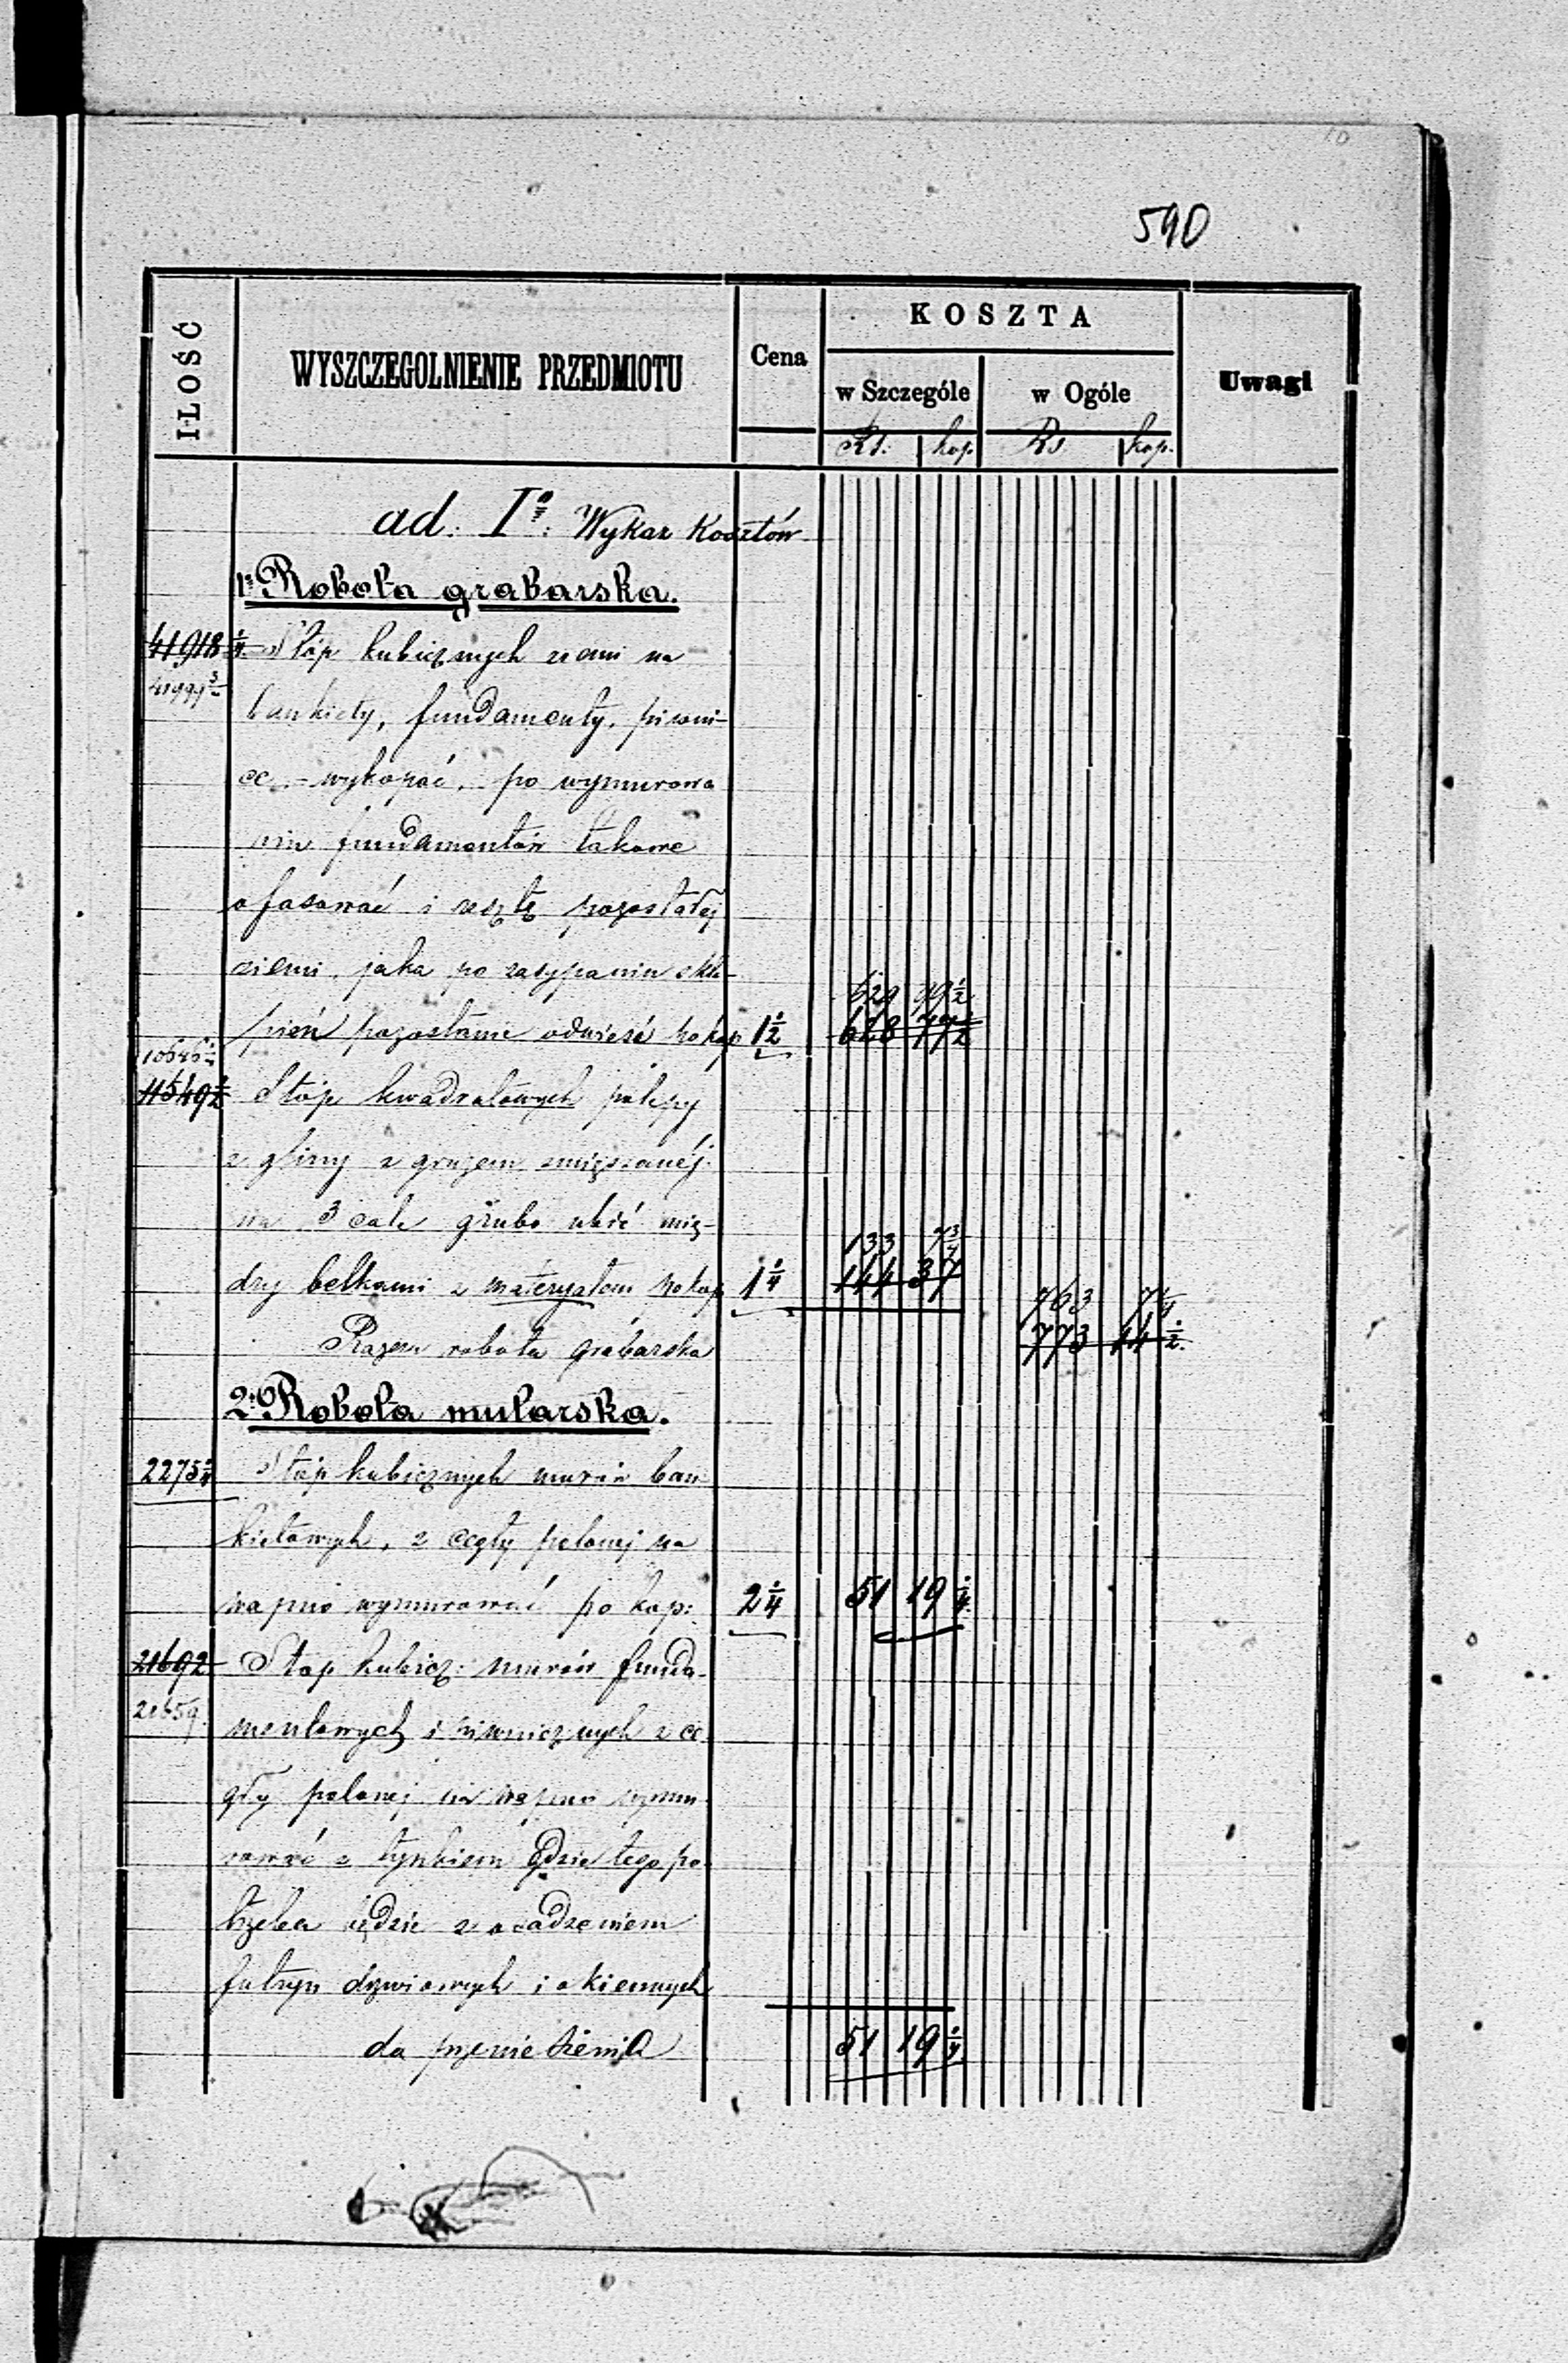 590
ILOŚĆ
WYSZCZEGOLNIENIE PRZEDMIOTU
Cena
KOSZTA
w Szczególe
w Ogóle
Uwagi
Rs. kop. Rs. kop.
ad. Iº: Wykaz Kosztów
1º Robota grabarska.
41918 1/4 Stóp kubicznych ziemi na
bankiety, fundamenty, piwni-
ce - wykopać, po wymurowa
niu fundamentów takowe
ofasować i resztę pozostałej
ziemi, jaka po zasypaniu skle-
629 99 1/2
pień pozostanie odwieść po kop 1 1/2 628 77 1/2
10646 1/2
11549 1/2 Stóp kwadratowych polepy
z gliny z gruzem zmięszanéj
na 3 cale grubo ubić mię-
133 7 3/4
dzy belkami z materyałem po kop 1 1/4 144 37
763 7 1/4
Razem robota grabarska 773 14 1/2
2º Robota mularska.
2275 1/4 Stóp kubicznych murów ban
kietowych, z cegły palonej na
wapno wymurować po kop: 2 1/4 51 19 1/4
21692 Stóp kubicz: murów funda-
21659
mentowych i piwnicznych z ce
gły palonej na wapno wymu
rować z tynkiem gdzie tego po
trzeba będzie z osadzeniem
futryn drzwiowych i okiennych
do przeniesienia 51 19 1/4